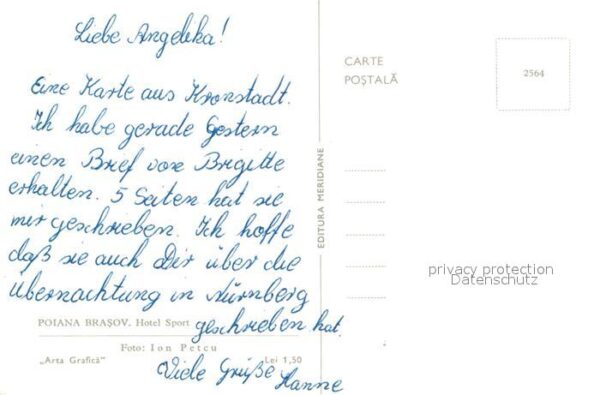 Liebe Angelika!
Eine Karte aus Kronstadt.
Ich habe gerade Gestern
einen Brief von Brigitte
erhalten. 5 Seiten hat sie
mir geschrieben. Ich hoffe
daß sie auch Dir über die
Übernachtung in Nürnberg
geschrieben hat.
Viele Grüße Hanne
POIANA BRAȘOV. Hotel Sport
Foto: Ion Petcu
„Arta Grafică”
Lei 1,50
EDITURA MERIDIANE
CARTE
POȘTALĂ
2564
privacy protection
Datenschutz